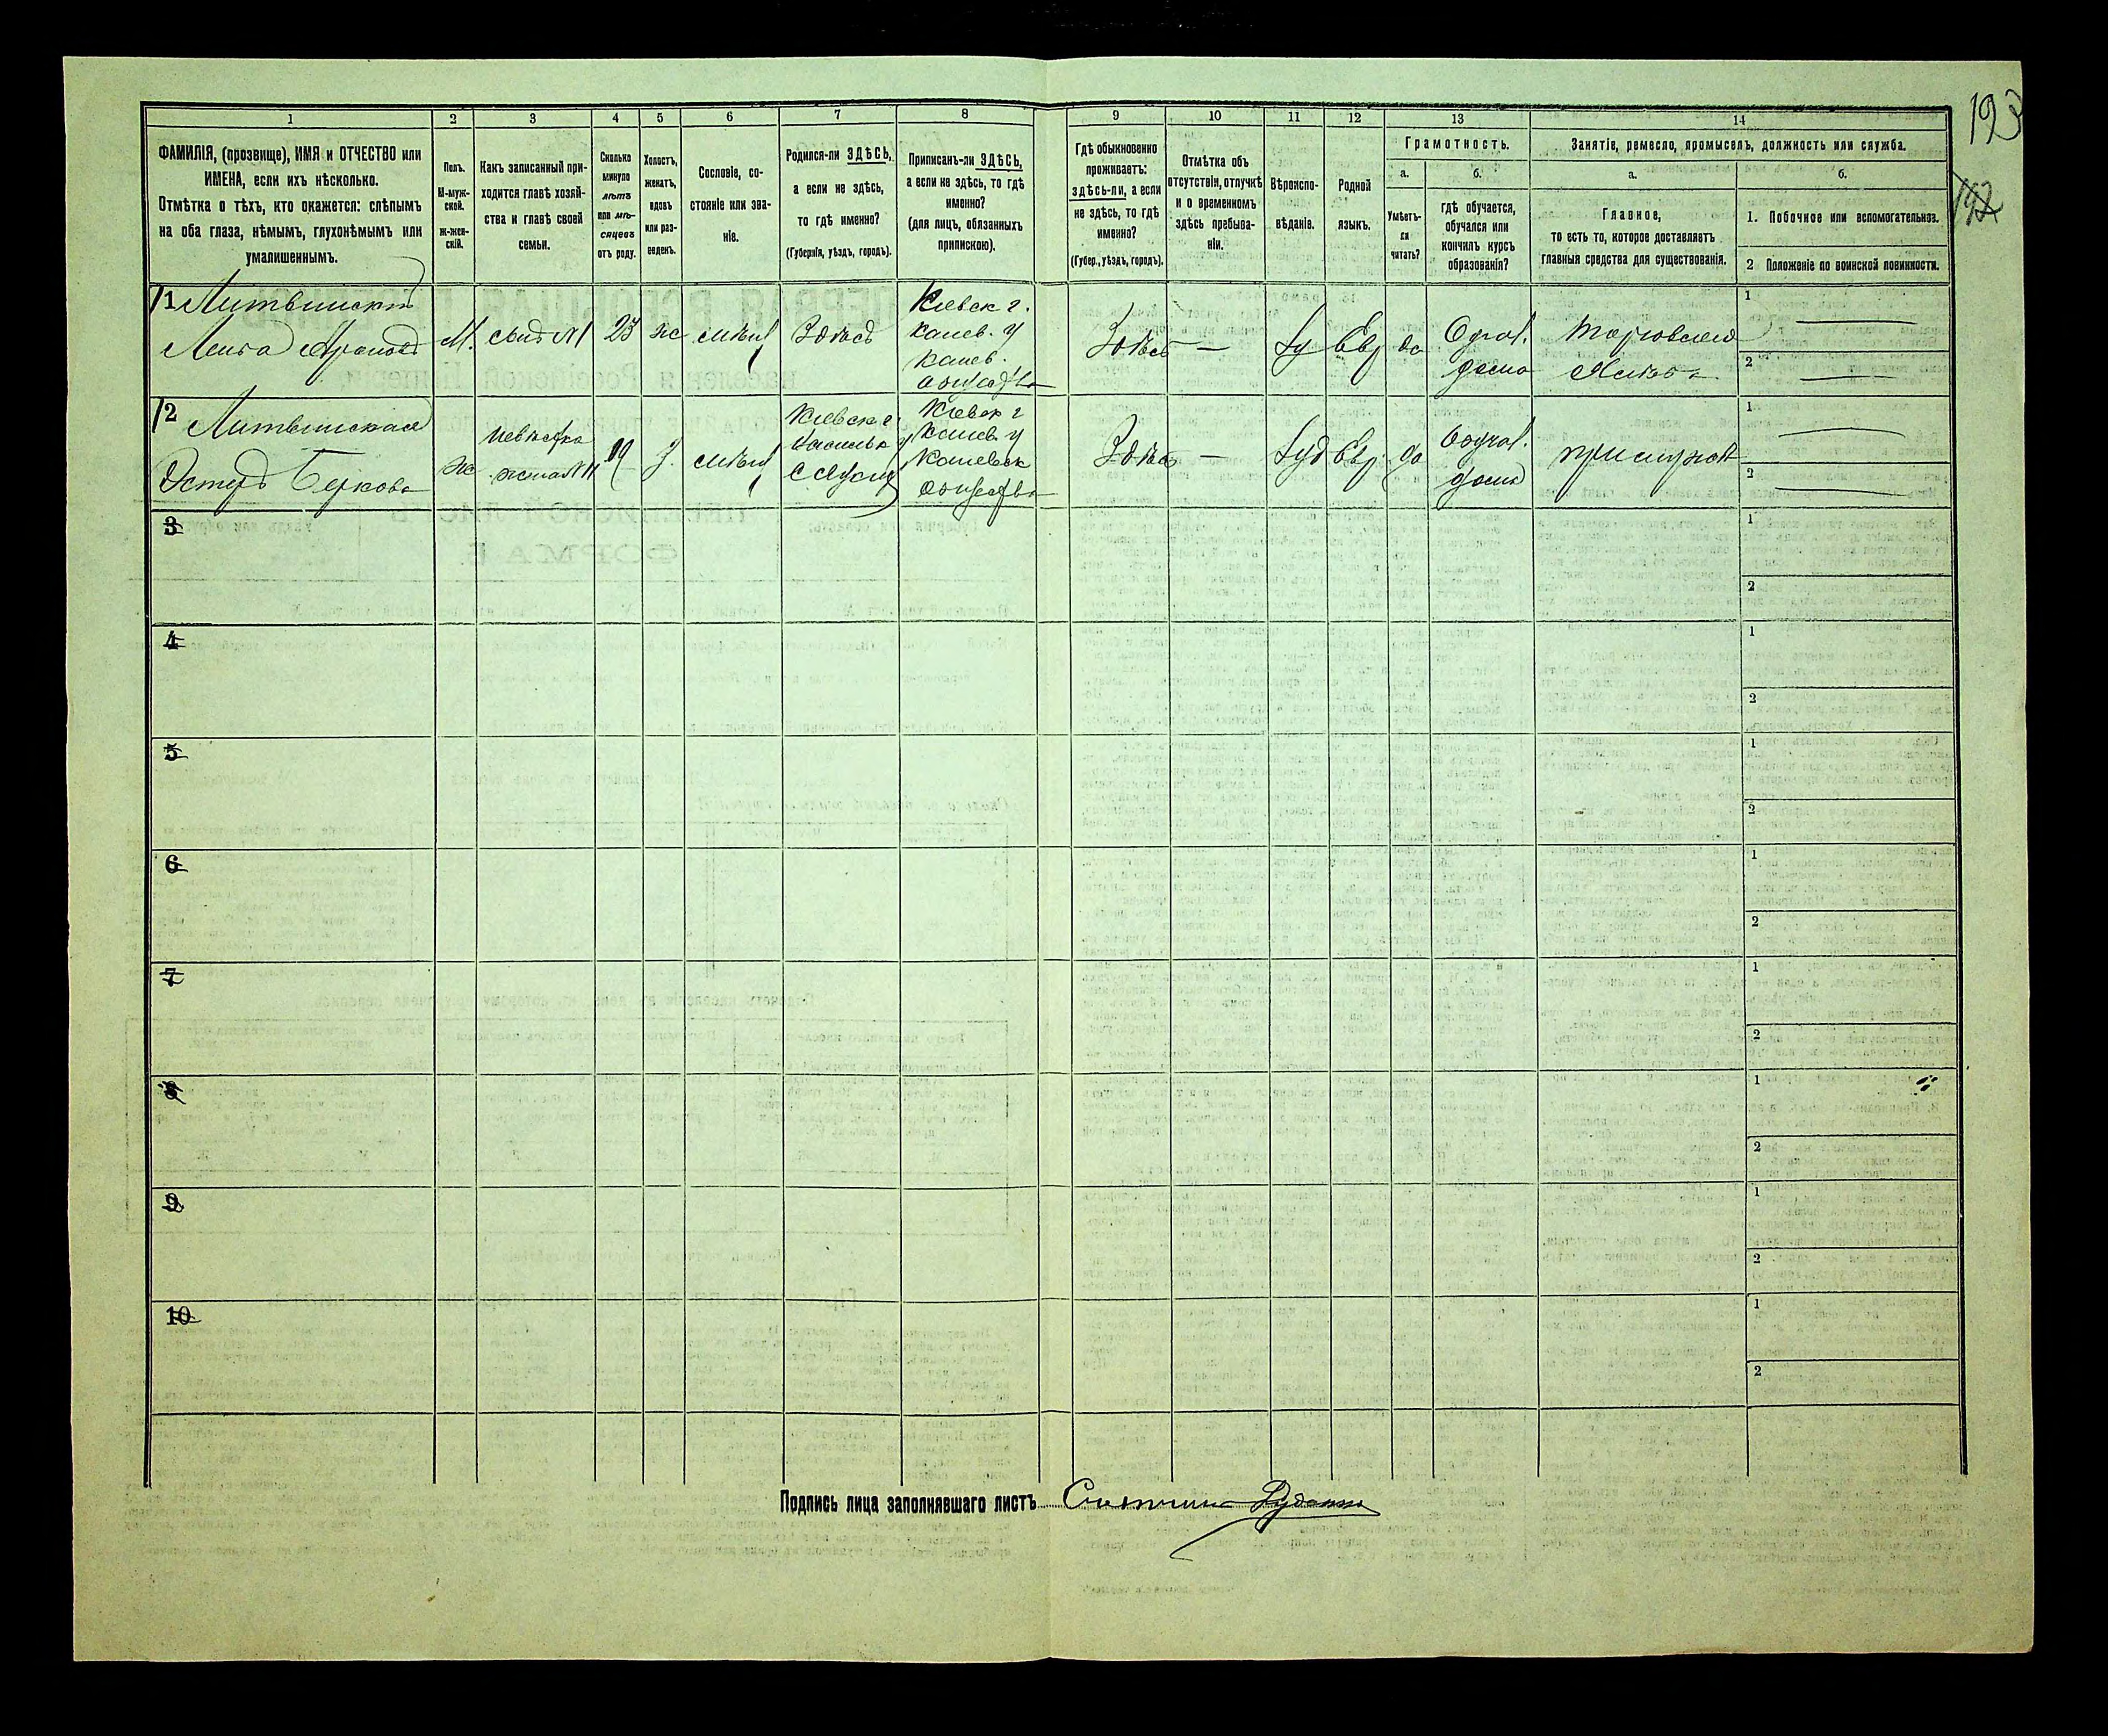 193
192
1 2 3 4 5 6 7 8 9 10 11 12 13 14
ФАМИЛІЯ, (прозвище), ИМЯ и ОТЧЕСТВО или
ИМЕНА, если ихъ нѣсколько.
Отмѣтка о тѣхъ, кто окажется: слѣпымъ
на оба глаза, нѣмымъ, глухонѣмымъ или
умалишеннымъ.
Полъ.
М-муж-
ской.
ж-жен-
скій.
Какъ записанный при-
ходится главѣ хозяй-
ства и главѣ своей
семьи.
Сколько
минуло
лѣтъ
или мѣ-
сяцевъ
отъ роду.
Холостъ,
женатъ,
вдовъ
или раз-
веденъ.
Сословіе, со-
стояніе или зва-
ніе.
Родился-ли ЗДѢСЬ,
а если не здѣсь,
то гдѣ именно?
(Губернія, уѣздъ, городъ).
Приписанъ-ли ЗДѢСЬ,
а если не здѣсь, то гдѣ
именно?
(для лицъ, обязанныхъ
припискою).
Гдѣ обыкновенно
проживаетъ:
здѣсь-ли, а если
не здѣсь, то гдѣ
именно?
(Губер., уѣздъ, городъ).
Отмѣтка объ
отсутствіи, отлучкѣ
и о временномъ
здѣсь пребыва-
ніи.
Вѣроиспо-
вѣданіе.
Родной
языкъ.
Грамотность.
а.
Умѣетъ-
ли
читать?
б.
гдѣ обучается,
обучался или
кончилъ курсъ
образованія?
Занятіе, ремесло, промыселъ, должность или служба.
а.
Главное,
то есть то, которое доставляетъ
главныя средства для существованія.
б.
1. Побочное или вспомогательное.
2 Положеніе по воинской повинности.
11 Литвинскій
Арановъ
М.
сынъ №1
23
ж
мѣщ
Здѣсь
Кіевск г.
канев. у
канев.
общества
Здѣсь
—
Іу
Евр
да
дома
Торговля
1
2
12 Литвинская
Эстеръ Беркова
ж
невѣстка
жена №11
19
З.
мѣщ
Кіевск г
Кіевск г
канев у
каневск
общества
Здѣсь
—
Іуд
Евр.
да
дома
при мужѣ
1
2
3
1
2
4
1
2
5
1
2
6
1
2
7
1
2
8
1
2
9
1
2
10
1
2
Подпись лица заполнявшаго листъ